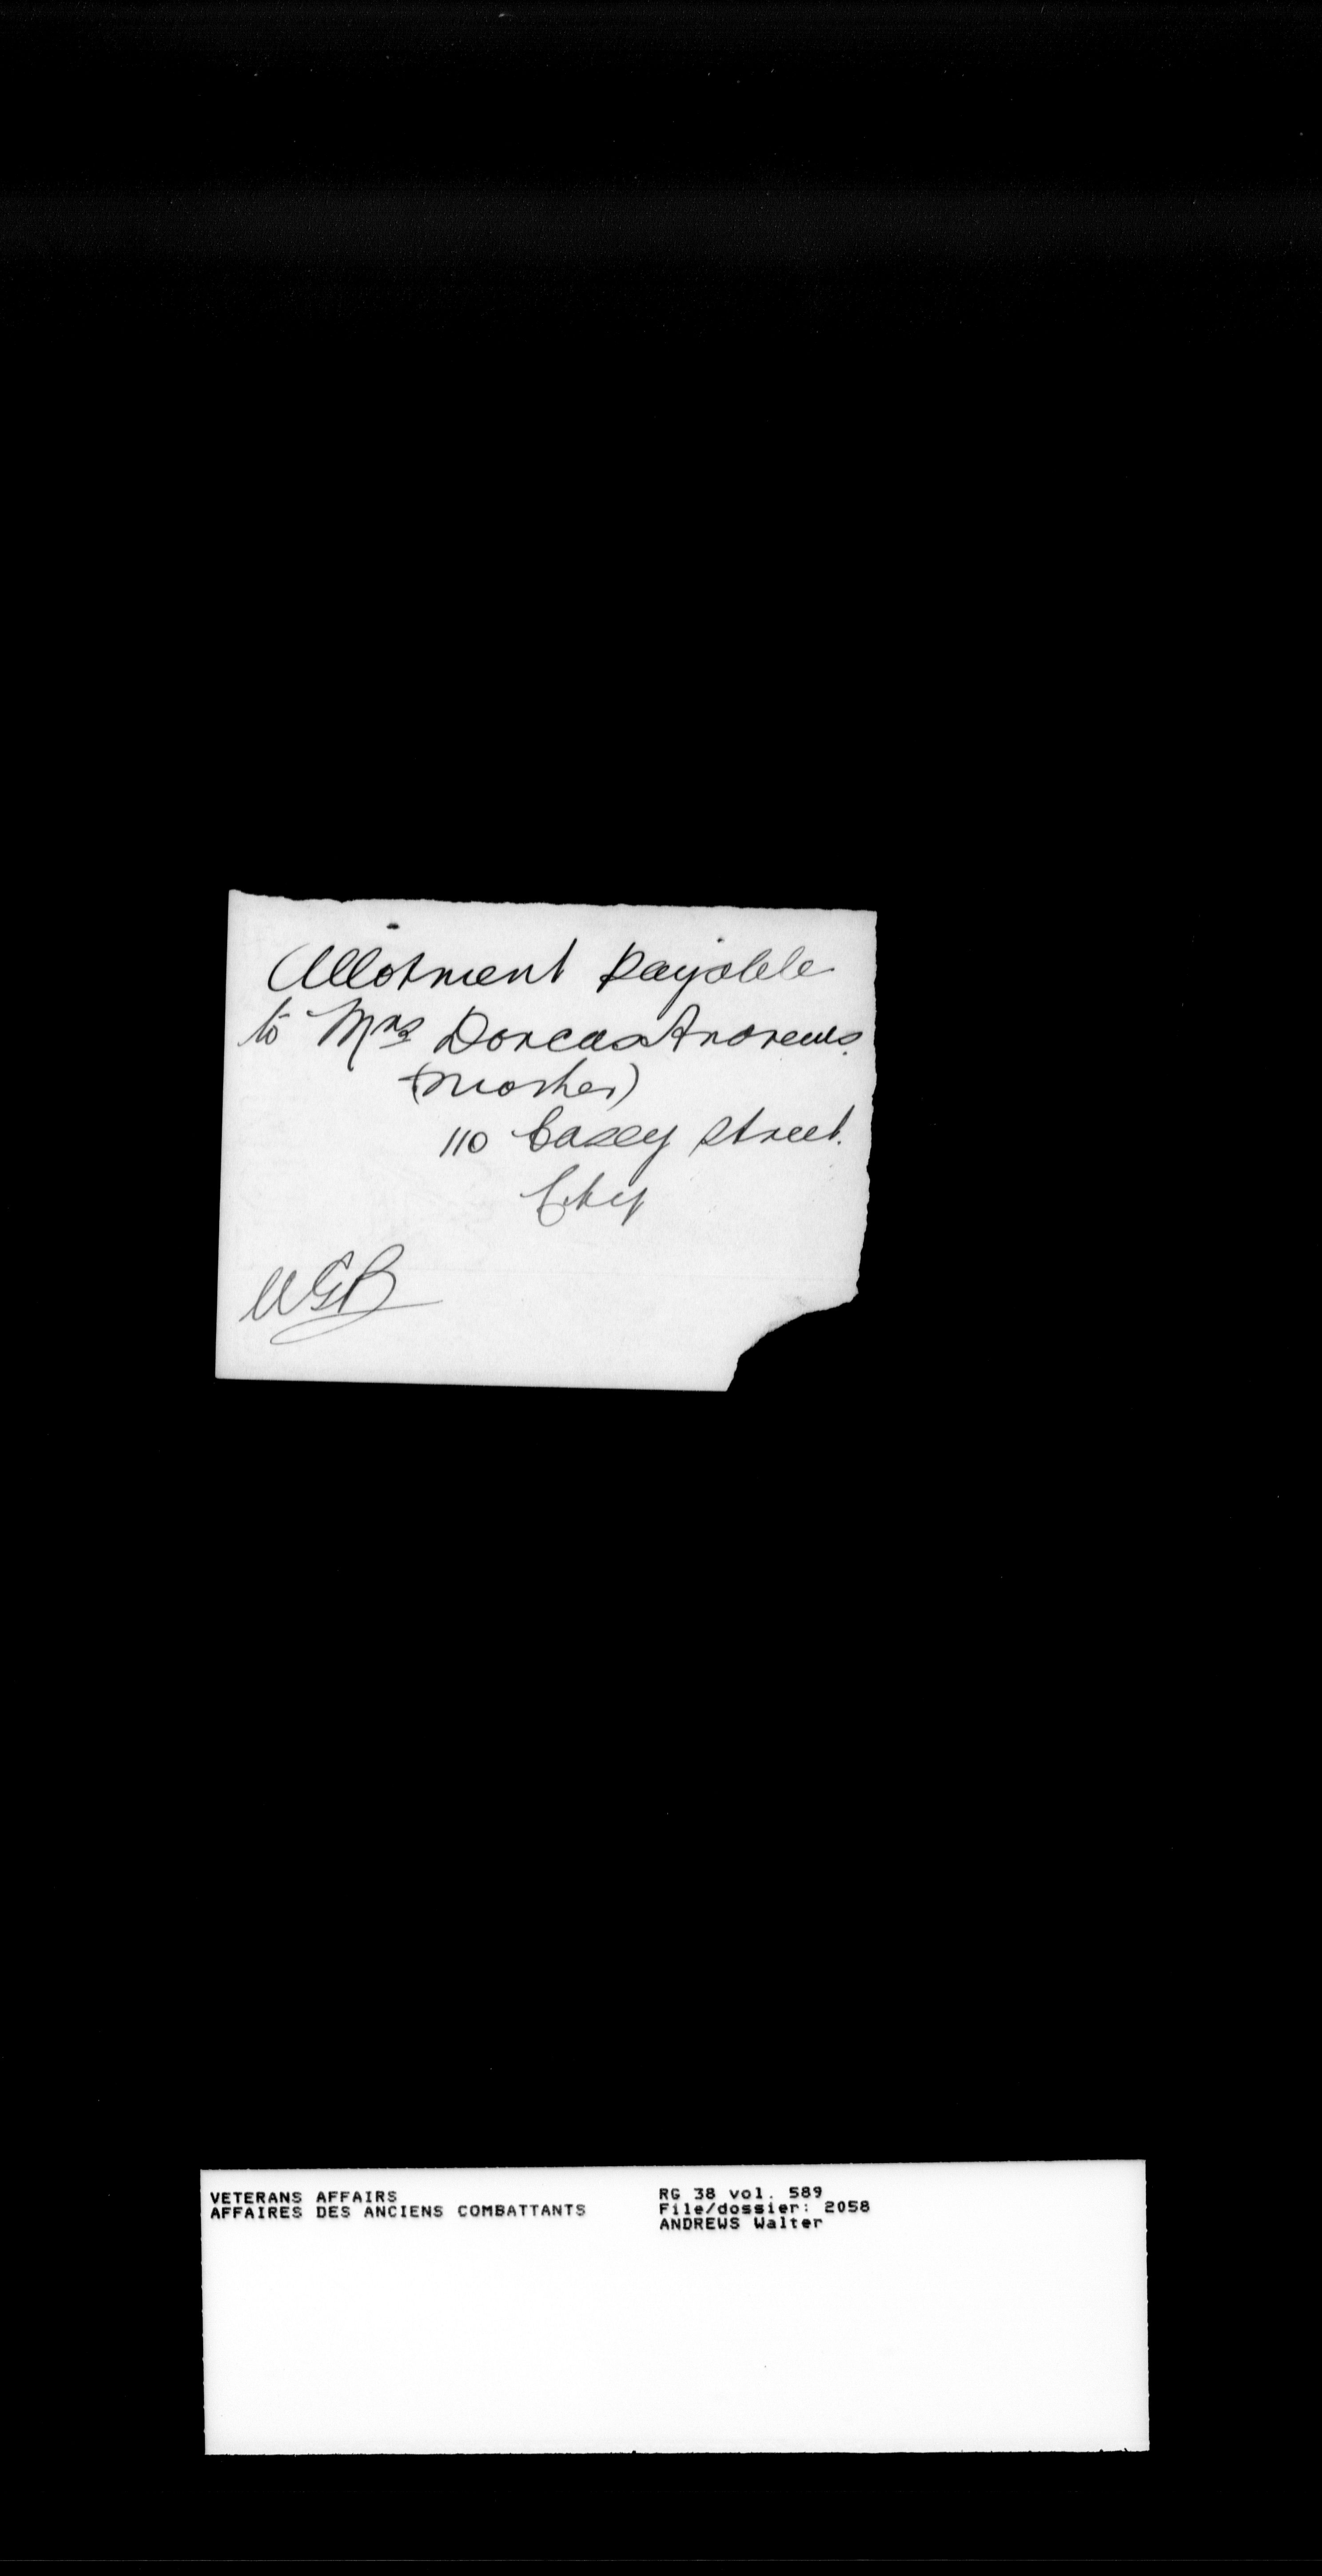 Allotment Payable
to Mrs Dorcas Andrews.
(Mother)
110 Casey Street.
City
WGB
VETERANS AFFAIRS
AFFAIRES DES ANCIENS COMBATTANTS
RG 38 vol. 589
File/dossier: 2058
ANDREWS Walter